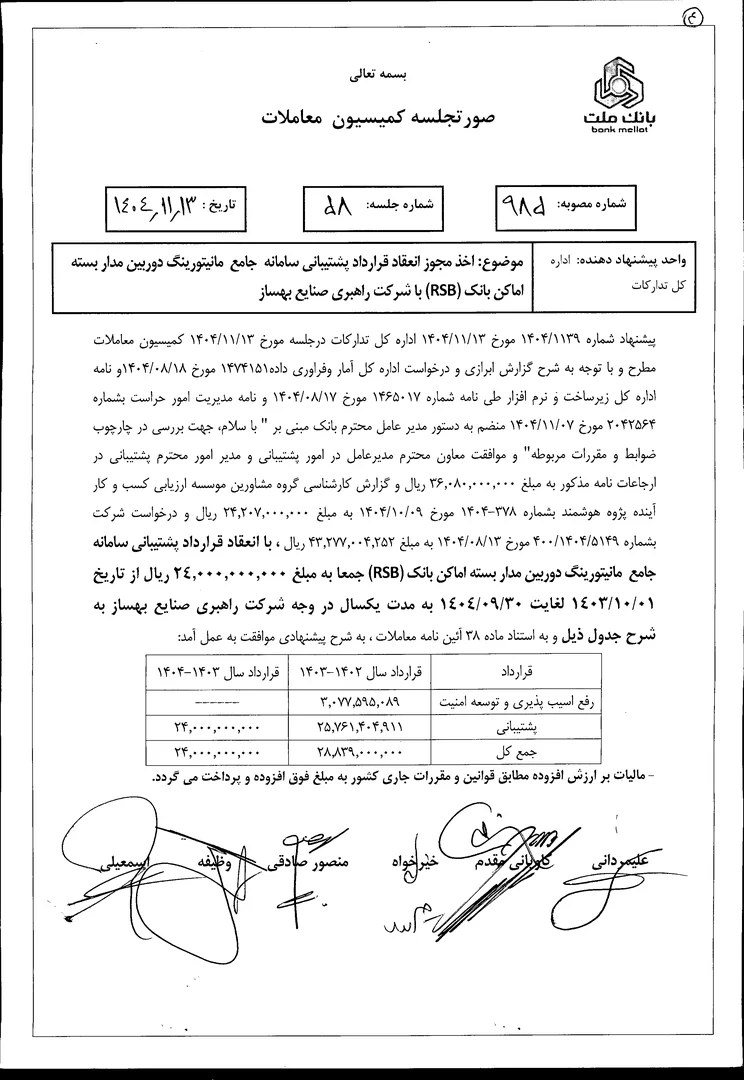 ۴
بسمه تعالی
بانک ملت
bank mellat
صورتجلسه کمیسیون معاملات
شماره مصوبه: ۹۸۵
شماره جلسه: ۵۸
تاریخ: ۱۴۰۴,۱۱,۱۳
واحد پیشنهاد دهنده: اداره
کل تدارکات
موضوع: اخذ مجوز انعقاد قرارداد پشتیبانی سامانه جامع مانیتورینگ دوربین مدار بسته
اماکن بانک (RSB) با شرکت راهبری صنایع بهساز
پیشنهاد شماره ۱۴۰۴/۱۱۳۹ مورخ ۱۴۰۴/۱۱/۱۳ اداره کل تدارکات درجلسه مورخ ۱۴۰۴/۱۱/۱۳ کمیسیون معاملات
مطرح و با توجه به شرح گزارش ابرازی و درخواست اداره کل آمار وفراوری داده۱۴۷۴۱۵۱ مورخ ۱۴۰۴/۰۸/۱۸و نامه
اداره کل زیرساخت و نرم افزار طی نامه شماره ۱۴۶۵۰۱۷ مورخ ۱۴۰۴/۰۸/۱۷ و نامه مدیریت امور حراست بشماره
۲۰۴۲۵۶۴ مورخ ۱۴۰۴/۱۱/۰۷ منضم به دستور مدیر عامل محترم بانک مبنی بر " با سلام، جهت بررسی در چارچوب
ضوابط و مقررات مربوطه" و موافقت معاون محترم مدیرعامل در امور پشتیبانی و مدیر امور محترم پشتیبانی در
ارجاعات نامه مذکور به مبلغ ۳۶,۰۸۰,۰۰۰,۰۰۰ ریال و گزارش کارشناسی گروه مشاورین موسسه ارزیابی کسب و کار
آینده پژوه هوشمند بشماره ۳۷۸-۱۴۰۴ مورخ ۱۴۰۴/۱۰/۰۹ به مبلغ ۲۴,۲۰۷,۰۰۰,۰۰۰ ریال و درخواست شرکت
بشماره ۴۰۰/۱۴۰۴/۵۱۴۹ مورخ ۱۴۰۴/۰۸/۱۳ به مبلغ ۴۳,۲۷۷,۰۰۴,۲۵۲ ریال ، با انعقاد قرارداد پشتیبانی سامانه
جامع مانیتورینگ دوربین مدار بسته اماکن بانک (RSB) جمعا به مبلغ ۲٤,۰۰۰,۰۰۰,۰۰۰ ریال از تاریخ
۱٤۰۳/۱۰/۰۱ لغایت ۱٤۰٤/۰۹/۳۰ به مدت یکسال در وجه شرکت راهبری صنایع بهساز به
شرح جدول ذیل و به استناد ماده ۳۸ آئین نامه معاملات ، به شرح پیشنهادی موافقت به عمل آمد:
قرارداد قرارداد سال ۱۴۰۲-۱۴۰۳ قرارداد سال ۱۴۰۳-۱۴۰۴
رفع اسیب پذیری و توسعه امنیت ۳,۰۷۷,۵۹۵,۰۸۹ ------
پشتیبانی ۲۵,۷۶۱,۴۰۴,۹۱۱ ۲۴,۰۰۰,۰۰۰,۰۰۰
جمع کل ۲۸,۸۳۹,۰۰۰,۰۰۰ ۲۴,۰۰۰,۰۰۰,۰۰۰
- مالیات بر ارزش افزوده مطابق قوانین و مقررات جاری کشور به مبلغ فوق افزوده و پرداخت می گردد.
علیمردانی کاویانی مقدم خیرخواه منصور صادقی وظیفه اسمعیلی